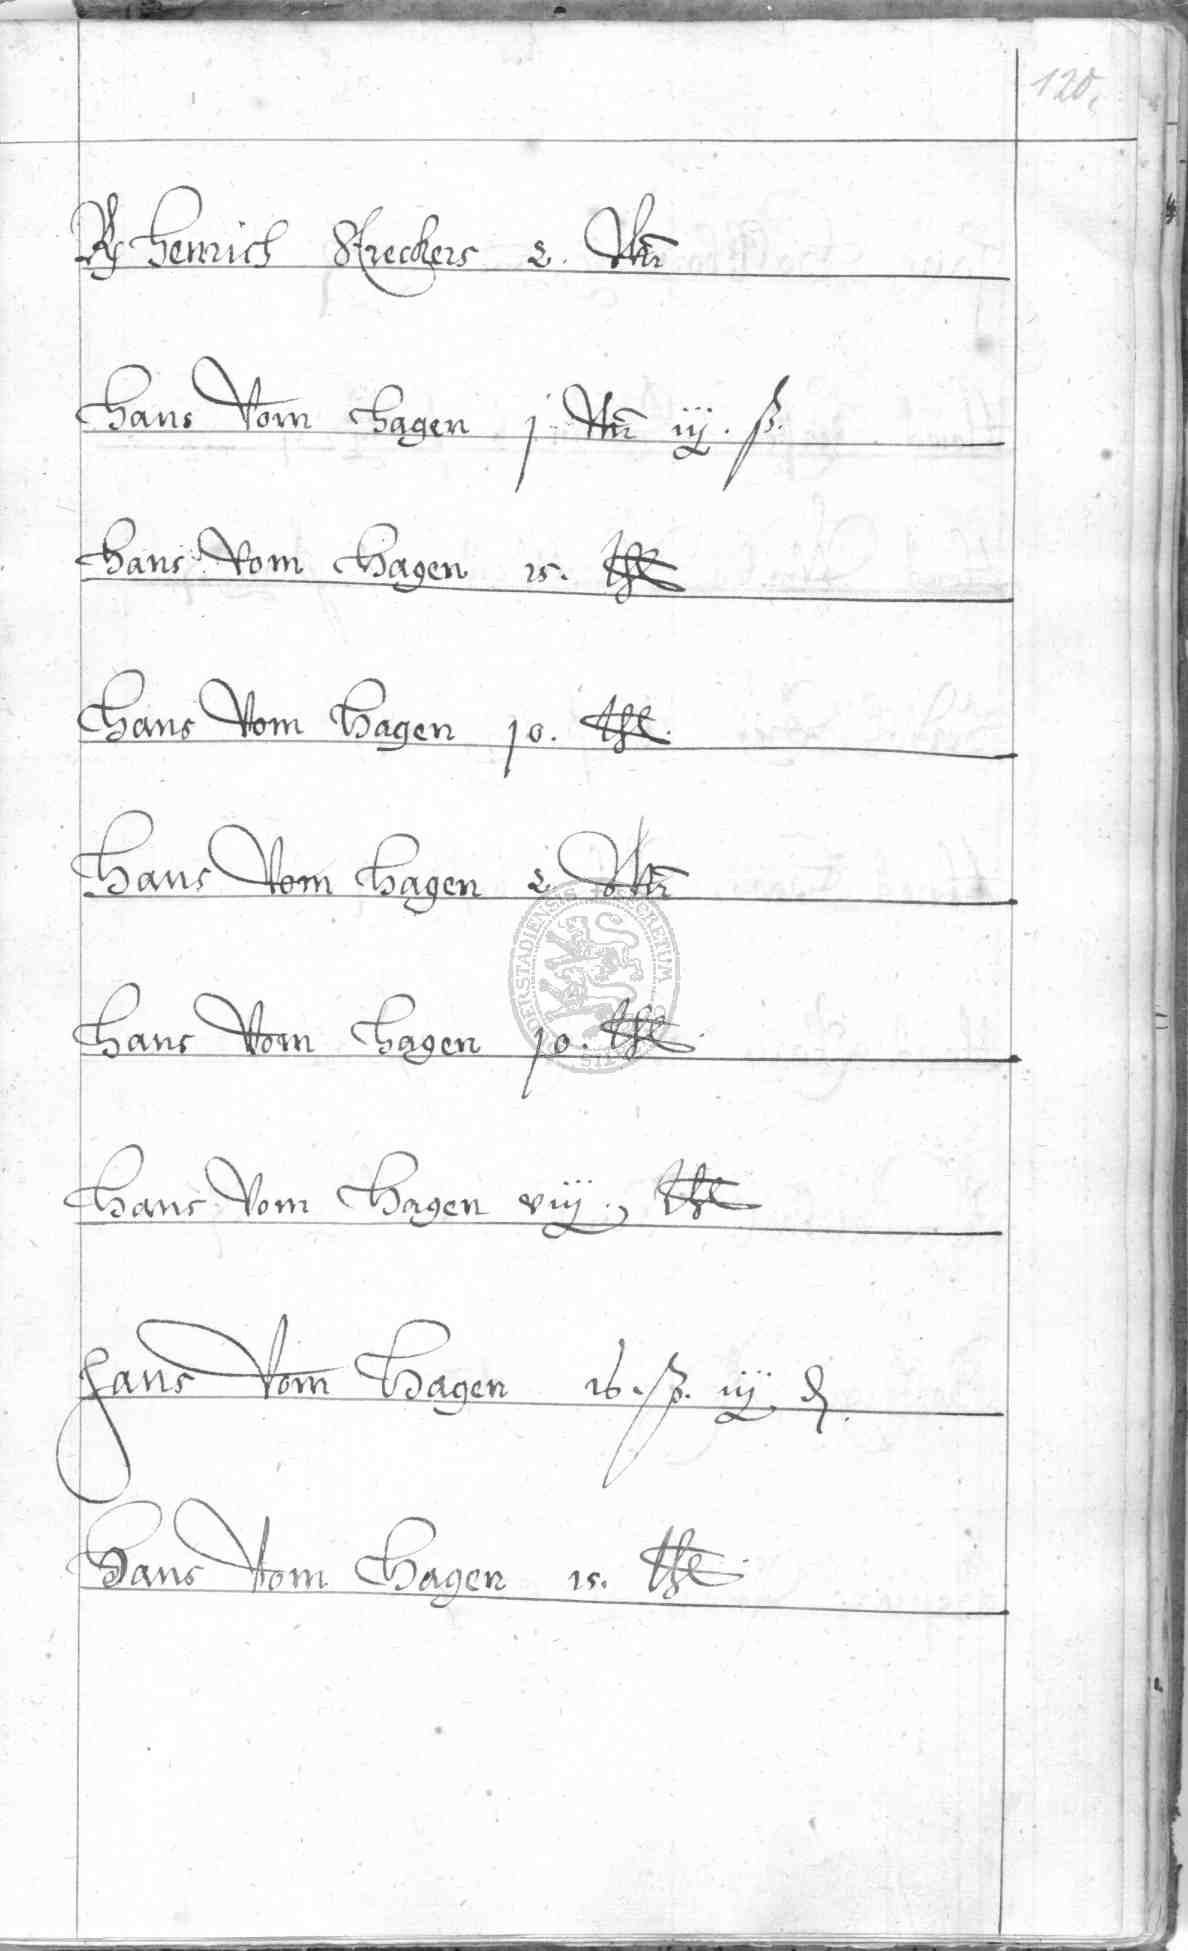 120.
Henrich Streckers 2. Mr
Hans Vom Hagen j Mr iij. ß.
Hans Vom Hagen 15. thl
Hans Vom Hagen 10. thl.
Hans Vom Hagen 2 Mr
Hans Vom Hagen 10. thl.
Hans Vom Hagen viij. thl
Hans Vom Hagen 16. ß. iij ₰.
Hans Vom Hagen 15. thl.
DERSTADIENSIS SECRETUM